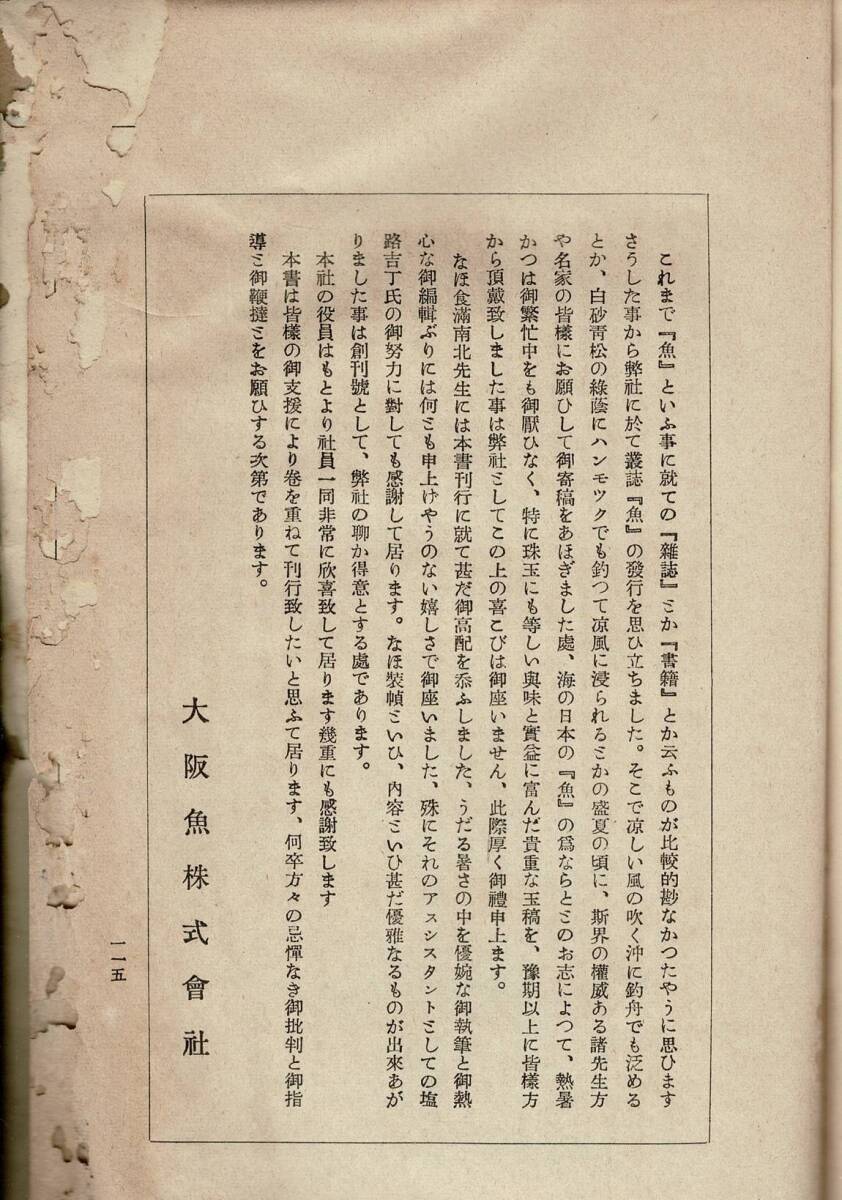 これまで『魚』といふ事に就ての『雜誌』とか『書籍』とか云ふものが比較的尠なかつたやうに思ひます
さうした事から弊社に於て叢誌『魚』の發行を思ひ立ちました。そこで凉しい風の吹く沖に釣舟でも泛める
とか、白砂靑松の綠蔭にハンモツクでも釣つて凉風に浸られるとかの盛夏の頃に、斯界の權威ある諸先生方
や名家の皆樣にお願ひして御寄稿をあほぎました處、海の日本の『魚』の爲ならととのお志によつて、熱暑
かつは御繁忙中をも御厭ひなく、特に珠玉にも等しい興味と實益に富んだ貴重な玉稿を、豫期以上に皆樣方
から頂戴致しました事は弊社としてこの上の喜こびは御座いません、此際厚く御禮申上ます。
なほ食滿南北先生には本書刊行に就て甚だ御高配を忝ふしました、うだる暑さの中を優婉な御執筆と御熱
心な御編輯ぶりには何とも申上げやうのない嬉しさで御座いました、殊にそれのアスシスタントとしての塩
路吉丁氏の御努力に對しても感謝して居ります。なほ裝幀といひ、內容といひ甚だ優雅なるものが出來あが
りました事は創刊號として、弊社の聊か得意とする處であります。
本社の役員はもとより社員一同非常に欣喜致して居ります幾重にも感謝致します
本書は皆樣の御支援により卷を重ねて刊行致したいと思ふて居ります、何卒方々の忌憚なき御批判と御指
導と御鞭撻とをお願ひする次第であります。
大阪魚株式會社
一一五